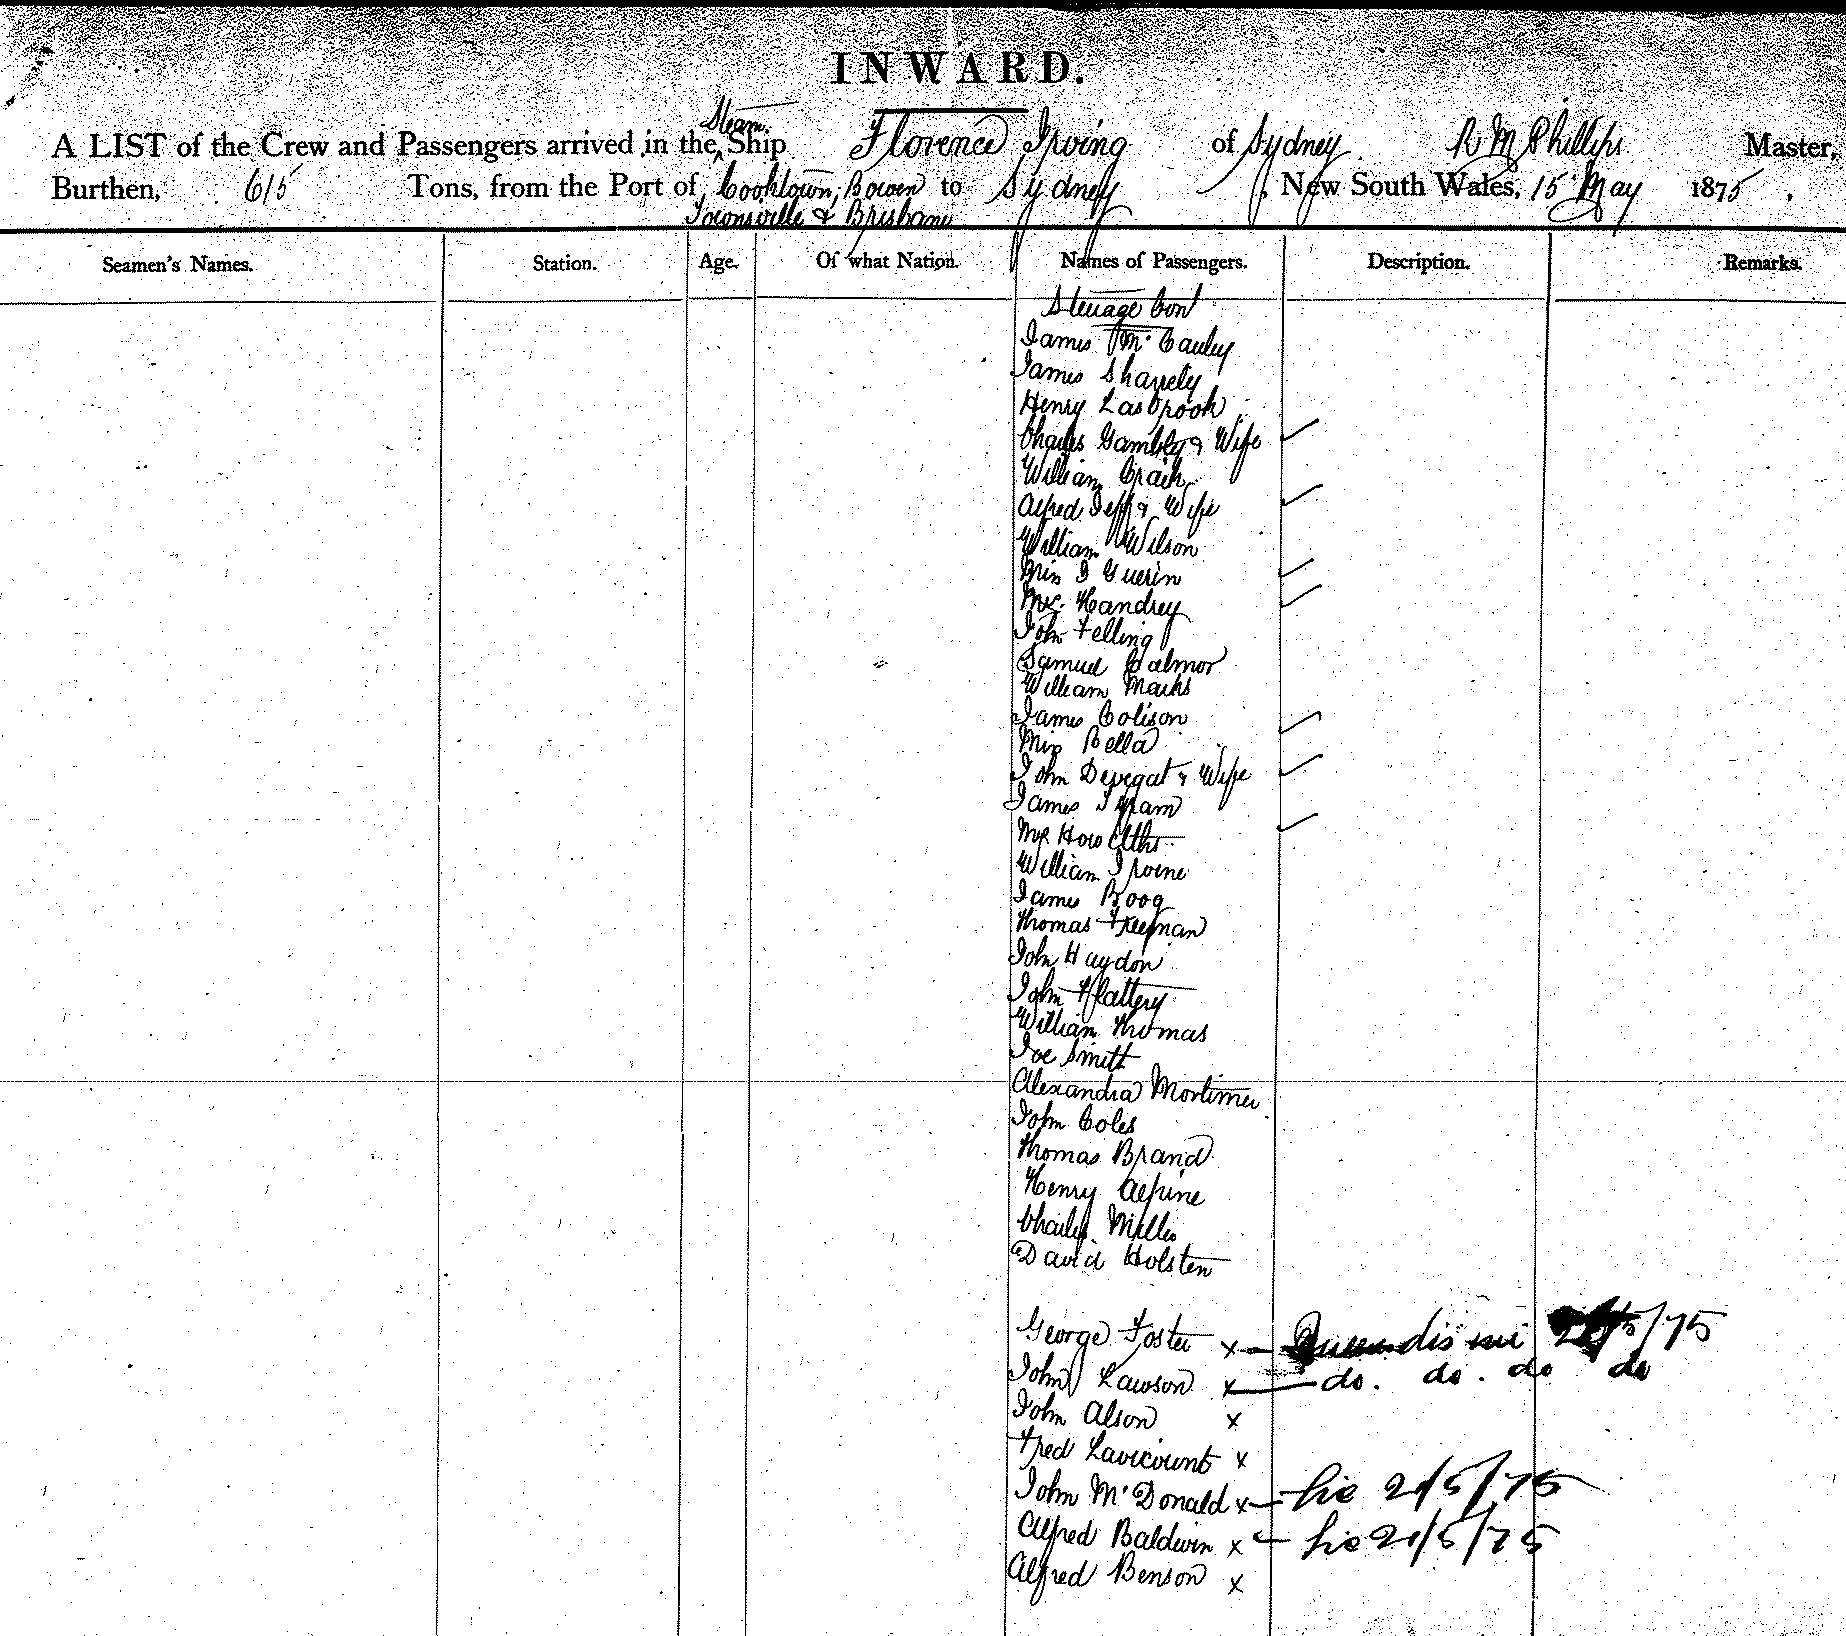 INWARD.
A LIST of the Crew and Passengers arrived in the Steam Ship Florence Irving of Sydney R M Phillips Master,
Burthen, 615 Tons, from the Port of Cooktown, Bowen to Sydney, New South Wales, 15 May 1875,
Townsville & Brisbane
Seamen's Names. Station. Age. Of what Nation. Names of Passengers. Description. Remarks.
Steerage Con
James Mc Cauley
James
Henry Lasbrook
Charles Gambly & Wife
William Craik
Alfred Jeff & Wife
William Wilson
Guerin
Mrs. Handrey
John Felling
Samuel Calmor
William Marks
James Colison
Miss Bella
John & Wife
James
William Irvine
James Boog
Thomas Freeman
John Haydon
John Flattery
William Thomas
Joe Smith
Alexandra Mortimer
John Coles
Thomas Brand
Henry Alpine
Charles Millis
David Holsten
George Foster x 75
John Lawson x do. do. do do
John Alson x
Fred Lavicount x
John McDonald x 21/5/75
Alfred Baldwin x 21/5/75
Alfred Benson x